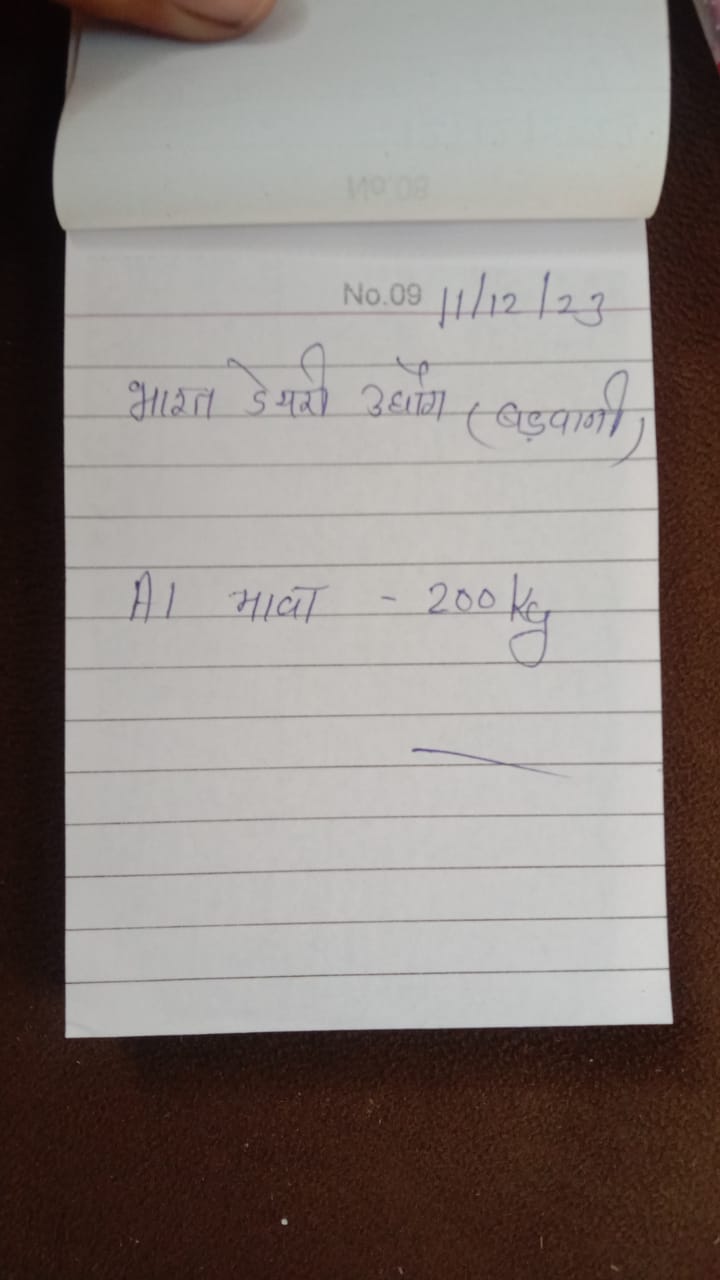 No.09 11/12/23
भारत डेयरी उधोग (बड़वानी)
A1 मावा - 200 kg